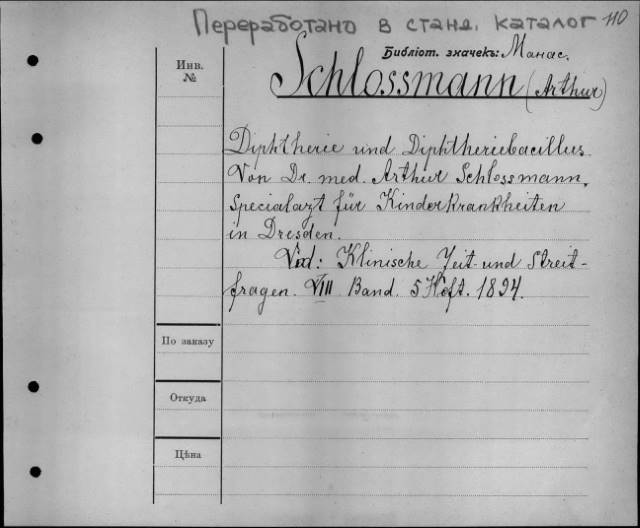 Переработано в станд. каталог 110
Библіот. значекъ: Манас.
Инв. №
Schlossmann (Arthur)
Diphtherie und Diphtheriebacillus.
Von Dr. med. Arthur Schlossmann,
Specialazt für Kinderkrankheiten
in Dresden.
Vid: Klinische Zeit- und Streit-
fragen. VIII Band. 5 Heft. 1894.
По заказу
Откуда
Цѣна